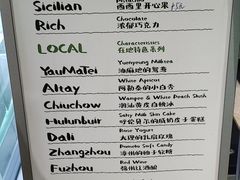 Sicilian
Pistachio
西西里开心果 +5元
Rich
Chocolate
浓郁巧克力
LOCAL
Characteristics
在地特色系列
YauMaTei
Yuenyeung Milktea
油麻地鸳鸯
Altay
White Apricot
阿勒泰的小白杏
Chiuchow
Wampee & White Peach Slush
潮汕黄皮白桃冰
Hulunbuir
Salty Milk Skin Cake
呼伦贝尔的咸奶皮子蛋糕
Dali
Rose Yogurt
大理的乳扇玫瑰
Zhangzhou
Pomelo Soft Candy
漳州的柚子软糖
Fuzhou
Red Wine
福州红酒酿